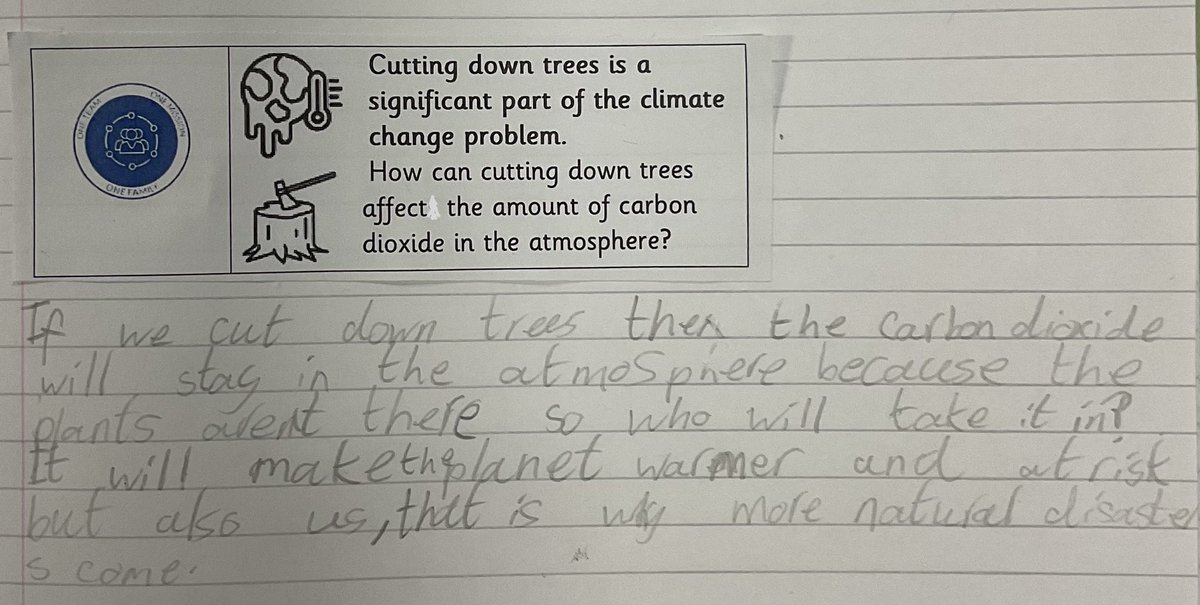 ONE TEAM
ONE MISSION
ONE FAMILY
Cutting down trees is a
significant part of the climate
change problem.
How can cutting down trees
affect the amount of carbon
dioxide in the atmosphere?
If we cut down trees then the Carbon dioxide
will stay in the atmosphere because the
plants arent there so who will take it in?
It will make the planet warmer and at risk
but also us, that is why more natural disaster
s come.